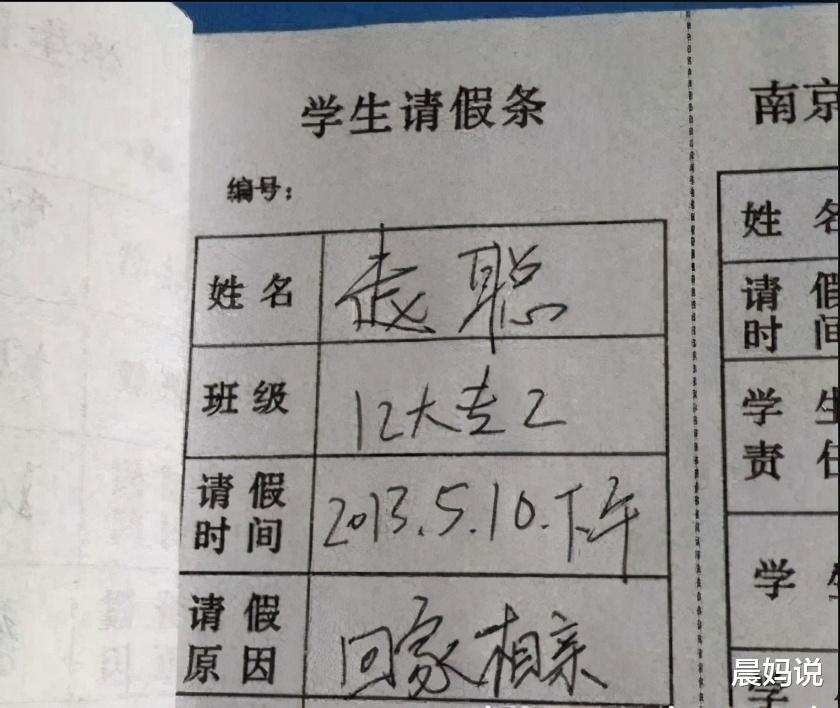 学生请假条
编号：
姓名 赵聪
班级 12大专2
请假时间 2013.5.10.下午
请假原因 回家相亲
南京
姓名
请假
时间
学生
责任
学生
学
晨妈说